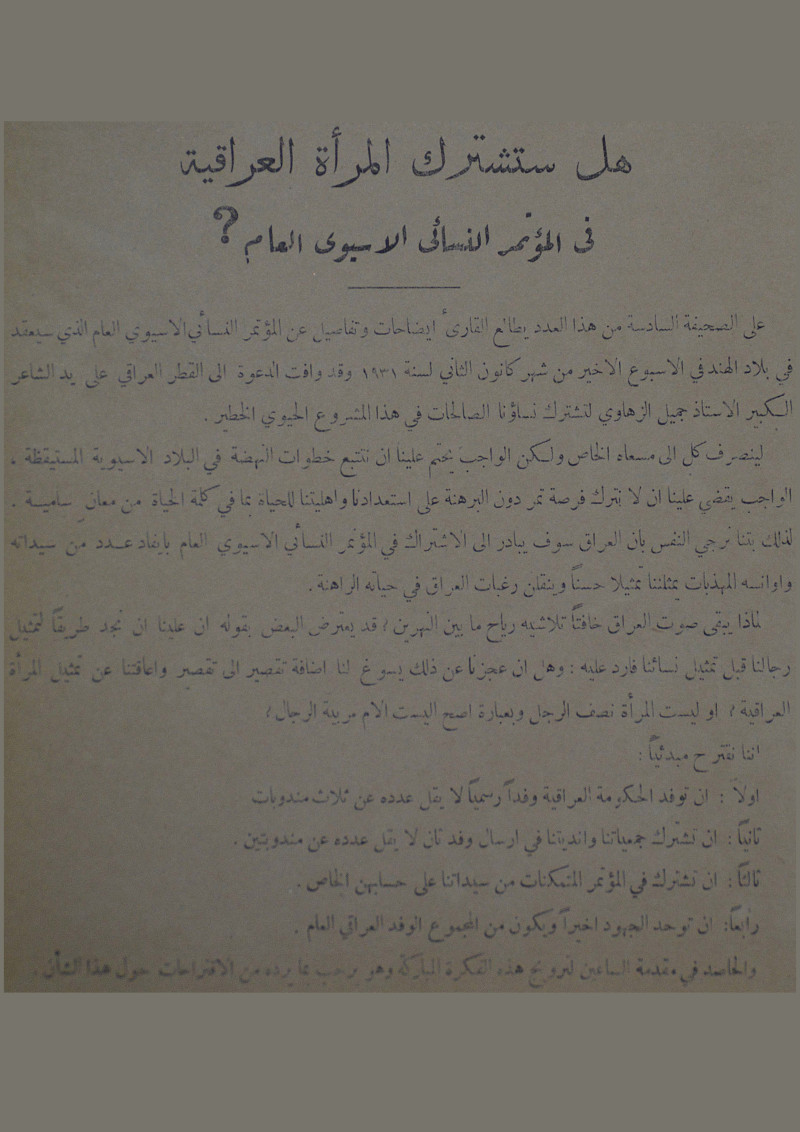 هل ستشترك المرأة العراقية
فى المؤتمر النسائى الاسيوى العام ?
على الصحيفة السادسة من هذا العدد يطالع القارئ ايضاحات وتفاصيل عن المؤتمر النسائي الاسيوي العام الذي سيعقد
في بلاد الهند في الاسبوع الاخير من شهر كانون الثاني لسنة ١٩٣١ وقد وافت الدعوة الى القطر العراقي على يد الشاعر
الكبير الاستاذ جميل الزهاوي لتشترك نساؤنا الصالحات في هذا المشروع الحيوي الخطير .
لينصرف كل الى مسعاه الخاص ولكن الواجب يحتم علينا ان نتتبع خطوات النهضة في البلاد الاسيوية المستيقظة .
الواجب يقضي علينا ان لا نترك فرصة تمر دون البرهنة على استعدادنا واهليتنا للحياة بما في كلمة الحياة من معانٍ سامية .
لذلك بتنا نرجي النفس بان العراق سوف يبادر الى الاشتراك في المؤتمر النسائي الاسيوي العام بايفاد عدد من سيداته
واوانسه المهذبات يمثلننا تمثيلا حسناً وينقلن رغبات العراق في حياته الراهنة .
لماذا يبقى صوت العراق خافتاً تلاشيه رياح ما بين النهرين ؟ قد يعترض البعض بقوله ان علينا ان نجد طريقاً لتمثيل
رجالنا قبل تمثيل نسائنا فارد عليه : وهل ان عجزنا عن ذلك يسوغ لنا اضافة تقصير الى تقصير واعاقتنا عن تمثيل المرأة
العراقية ؟ او ليست المرأة نصف الرجل وبعبارة اصح اليست الام مربية الرجال ؟
اننا نقترح مبدئياً :
اولاً : ان توفد الحكومة العراقية وفداً رسمياً لا يقل عدده عن ثلاث مندوبات
ثانياً : ان تشترك جمعياتنا وانديتنا في ارسال وفد ثان لا يقل عدده عن مندوبتين .
ثالثاً : ان تشترك في المؤتمر المتمكنات من سيداتنا على حسابهن الخاص .
رابعاً : ان توحد الجهود اخيراً ويكون من المجموع الوفد العراقي العام .
والحاصد في مقدمة الساعين لترويج هذه الفكرة المباركة وهو يرحب بما يرده من الاقتراحات حول هذا الشأن .